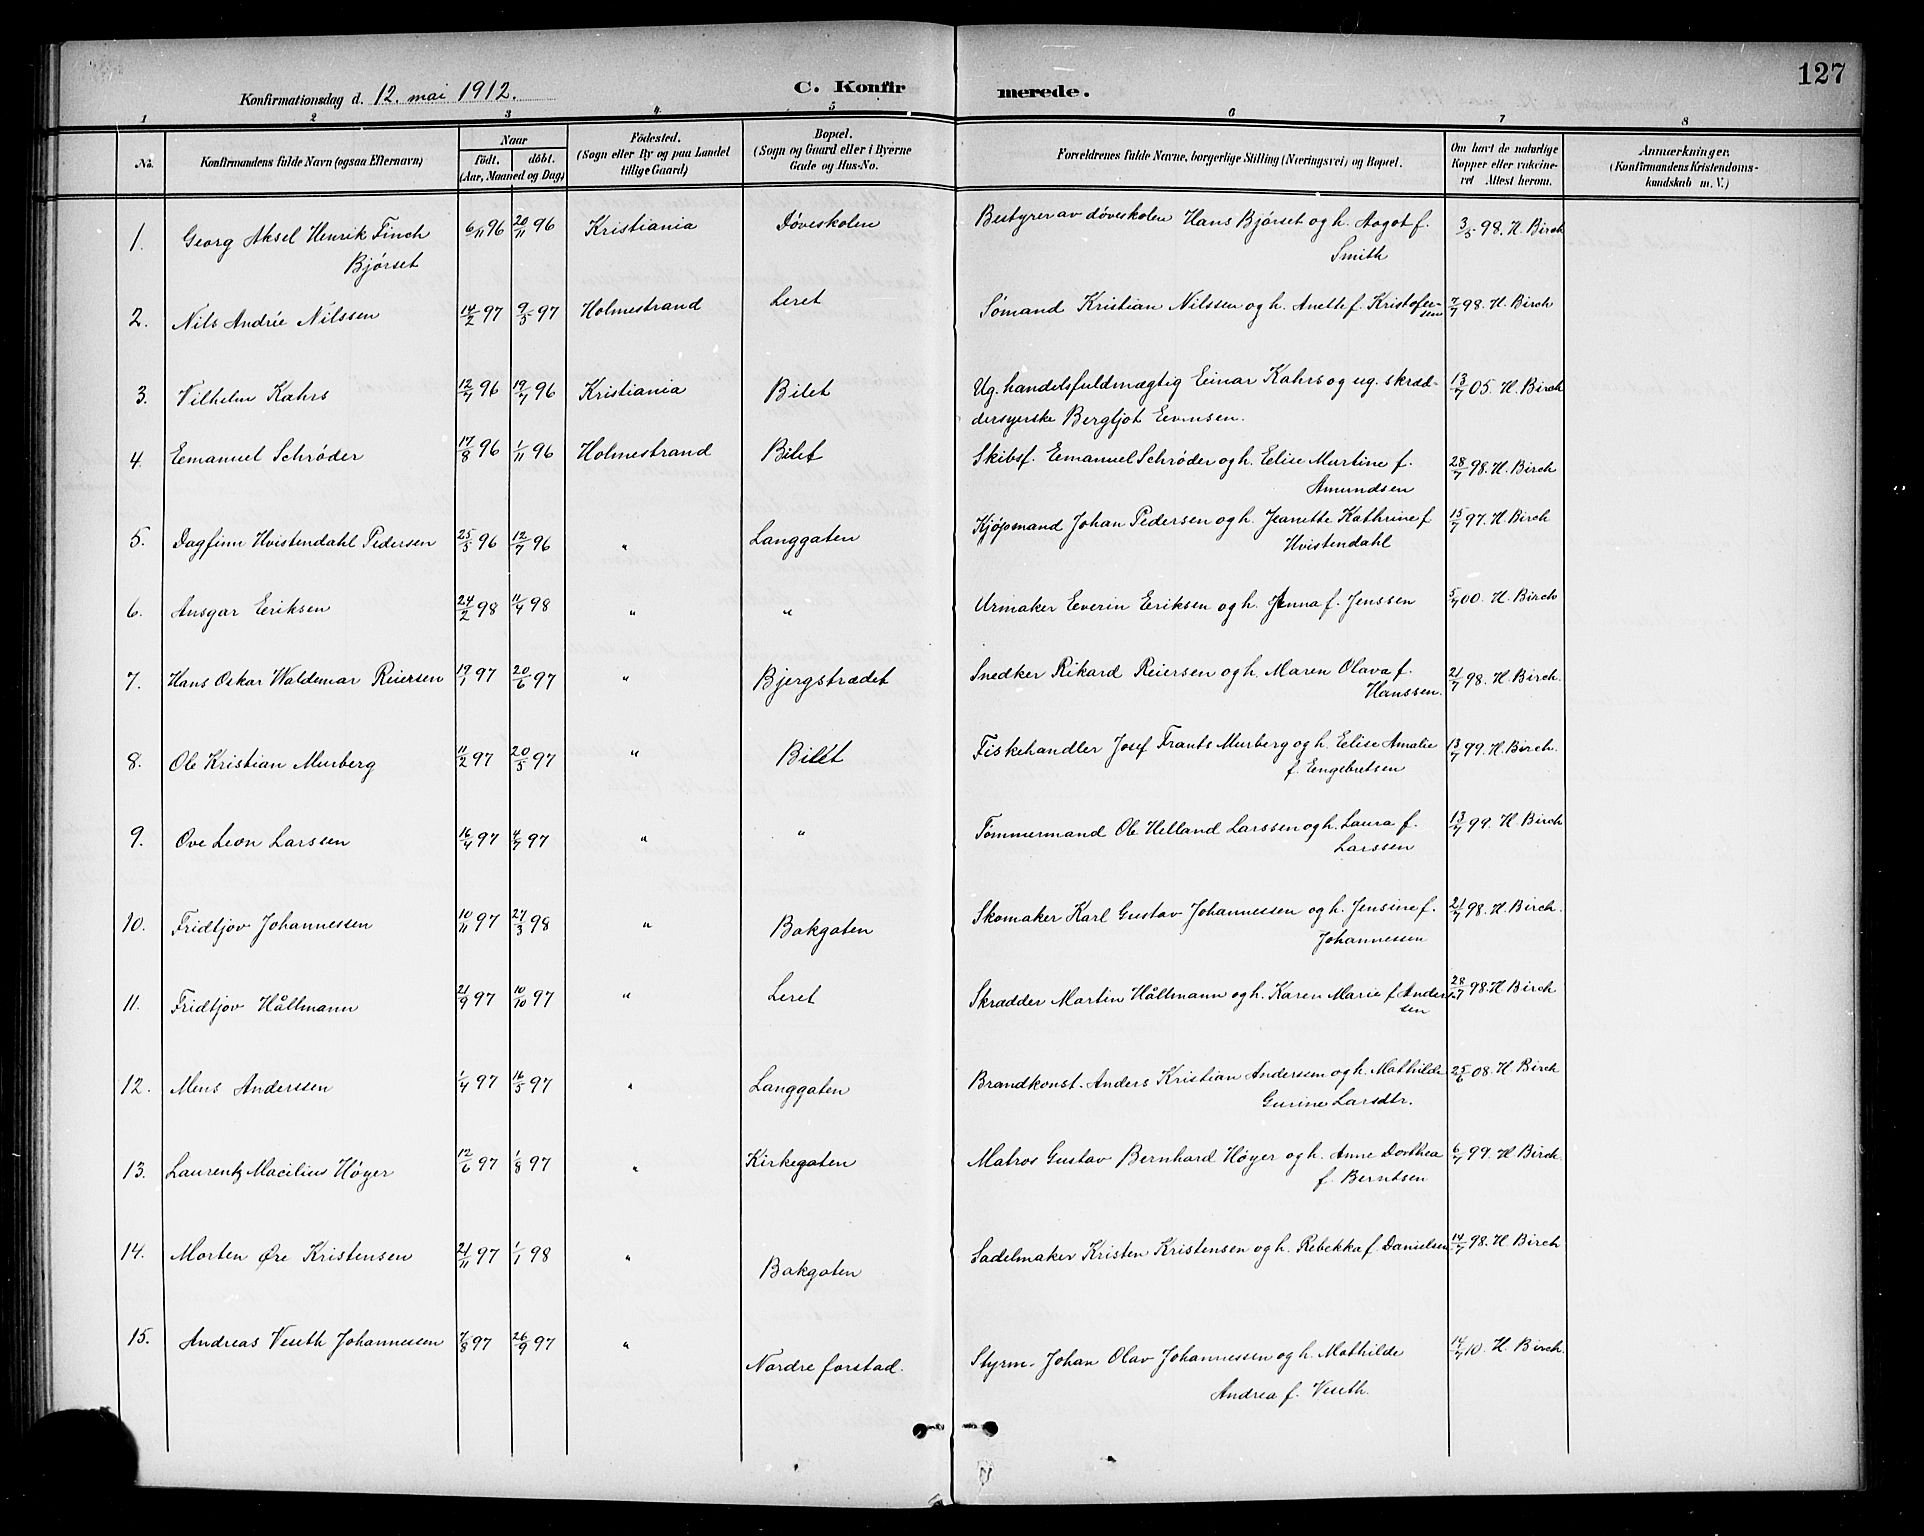 127
Konfirmationsdag d. 12. mai 1912. C. Konfirmerede.
1 2 3 4 5 6 7 8
No. Konfirmandens fulde Navn (ogsaa Efternavn) Naar födt. döbt. (Aar, Maaned og Dag) Födested. (Sogn eller By og paa Landet tillige Gaard) Bopæl. (Sogn og Gaard eller i Byerne Gade og Hus-No. Forældrenes fulde Navne, borgerlige Stilling (Næringsvei) og Bopæl. Om havt de naturlige Kopper eller vakcineret Attest herom. Anmærkninger. (Konfirmandens Kristendomskundskab m. V.)
1. Georg Aksel Henrik Finch 6/11 96 20/11 96 Kristiania Døveskolen Bestyrer av døveskolen Hans Bjørset og h. Aagot f. 3/5 98. H. Birch
Bjørset Smith
2. Nils Andrie Nilssen 14/2 97 9/5 97 Holmestrand Leret Sømand Kristian Nilssen og h. Anette f. Kristofersen 7/7 98. H. Birch
3. Vilhelm Kahrs 12/4 96 19/4 96 Kristiania Bilet Ug. handelsfuldmægtig Einar Kahrs og ug. skræd- 13/7 05. H. Birch
dersyerske Bergljot Evensen.
4. Emanuel Schrøder 17/8 96 1/11 96 Holmestrand Bilet Skibsf. Emanuel Schrøder og h. Elise Martine f. 28/7 98. H. Birch
Amundsen
5. Dagfinn Hvistendahl Pedersen 25/5 96 12/7 96 " Langgaten Kjøpmand Johan Pedersen og h. Jeanette Kathrine f 15/7 97. H. Birch
Hvistendahl
6. Ansgar Eriksen 24/2 98 11/4 98 " " Urmaker Everin Eriksen og h. Jenna f. Jenssen 5/7 00. H. Birch
7. Hans Oskar Waldemar Reiersen 19/1 97 20/6 97 " Bjergstrædet Snedker Rikard Reiersen og h. Maren Olava f. 21/7 98. H. Birch.
Hanssen.
8. Ole Kristian Murberg 11/2 97 20/5 97 " Bilet Fiskehandler Josef Frants Murberg og h. Elise Amalie 13/7 99. H. Birch.
f. Engebretsen
9. Ove Leon Larssen 16/4 97 4/7 97 " " Tømmermand Ole Helland Larssen og h. Laura f. 13/7 99. H. Birch
Larssen
10. Fridtjov Johannessen 10/11 97 27/3 98 " Bakgaten Skomaker Karl Gustav Johannessen og h. Jensine f. 21/7 98. H. Birch.
Johannessen
11. Fridtjov Hållmann 21/9 97 10/10 97 " Leret Skrædder Martin Hållmann og h. Karen Marie f. Andersen 28/7 98. H Birch
12. Mens Anderssen 1/4 97 16/5 97 " Langgaten Brandkonst. Anders Kristian Anderssen og h. Mathilde 25/6 08. H Birch
Gurine Larsdtr.
13. Laurentz Macilius Høyer 12/6 97 1/8 97 " Kirkegaten Matros Gustav Bernhard Høyer og h. Anne Dorthea 6/7 99. H Birch.
f. Berntsen
14. Morten Øre Kristensen 21/11 97 1/1 98 " Bakgaten Sadelmaker Kristen Kristensen og h. Rebekka f. Danielsen 14/7 98. H Birch
15. Andreas Veseth Johannessen 7/8 97 26/9 97 " Nordre forstad. Styrm. Johan Olav Johannessen og h. Mathilde 14/7 10. H. Birch.
Andrea f. Veseth.